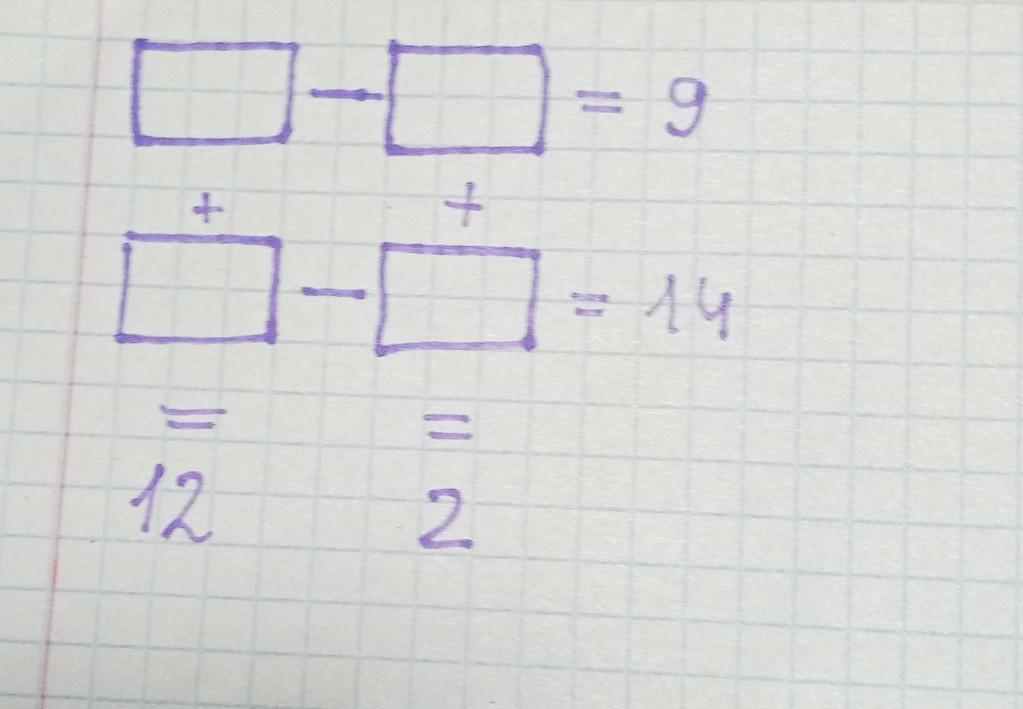 □ − □ = 9
+ +
□ − □ = 14
= =
12 2